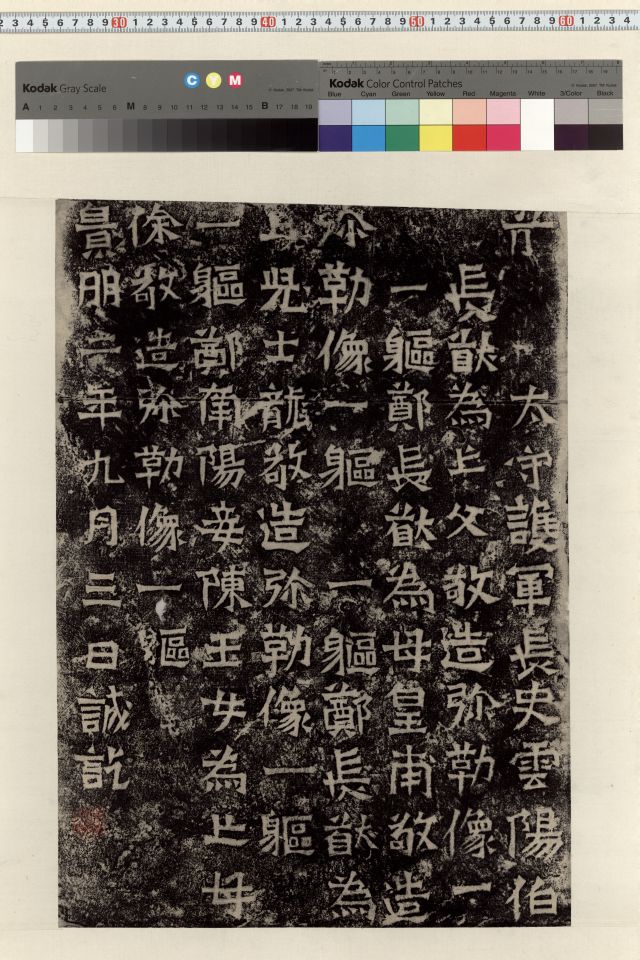 2 3 4 5 6 7 8 9 30 1 2 3 4 5 6 7 8 9 40 1 2 3 4 5 6 7 8 9 50 1 2 3 4 5 6 7 8 9 60 1 2 3 4
Kodak Gray Scale
C Y M
A 1 2 3 4 5 6 M 8 9 10 11 12 13 14 15 B 17 18 19
Kodak Color Control Patches
Blue Cyan Green Yellow Red Magenta White 3/Color Black
太守護軍長史雲陽伯
長猷為亡父敬造弥勒像一
一軀鄭長猷為母皇甫敬造
弥勒像一軀一軀鄭長猷為
亡児士龍敬造弥勒像一軀
一軀鄭南陽妾陳玉女為亡母
徐敬造弥勒像一軀
景明二年九月三日誡訖